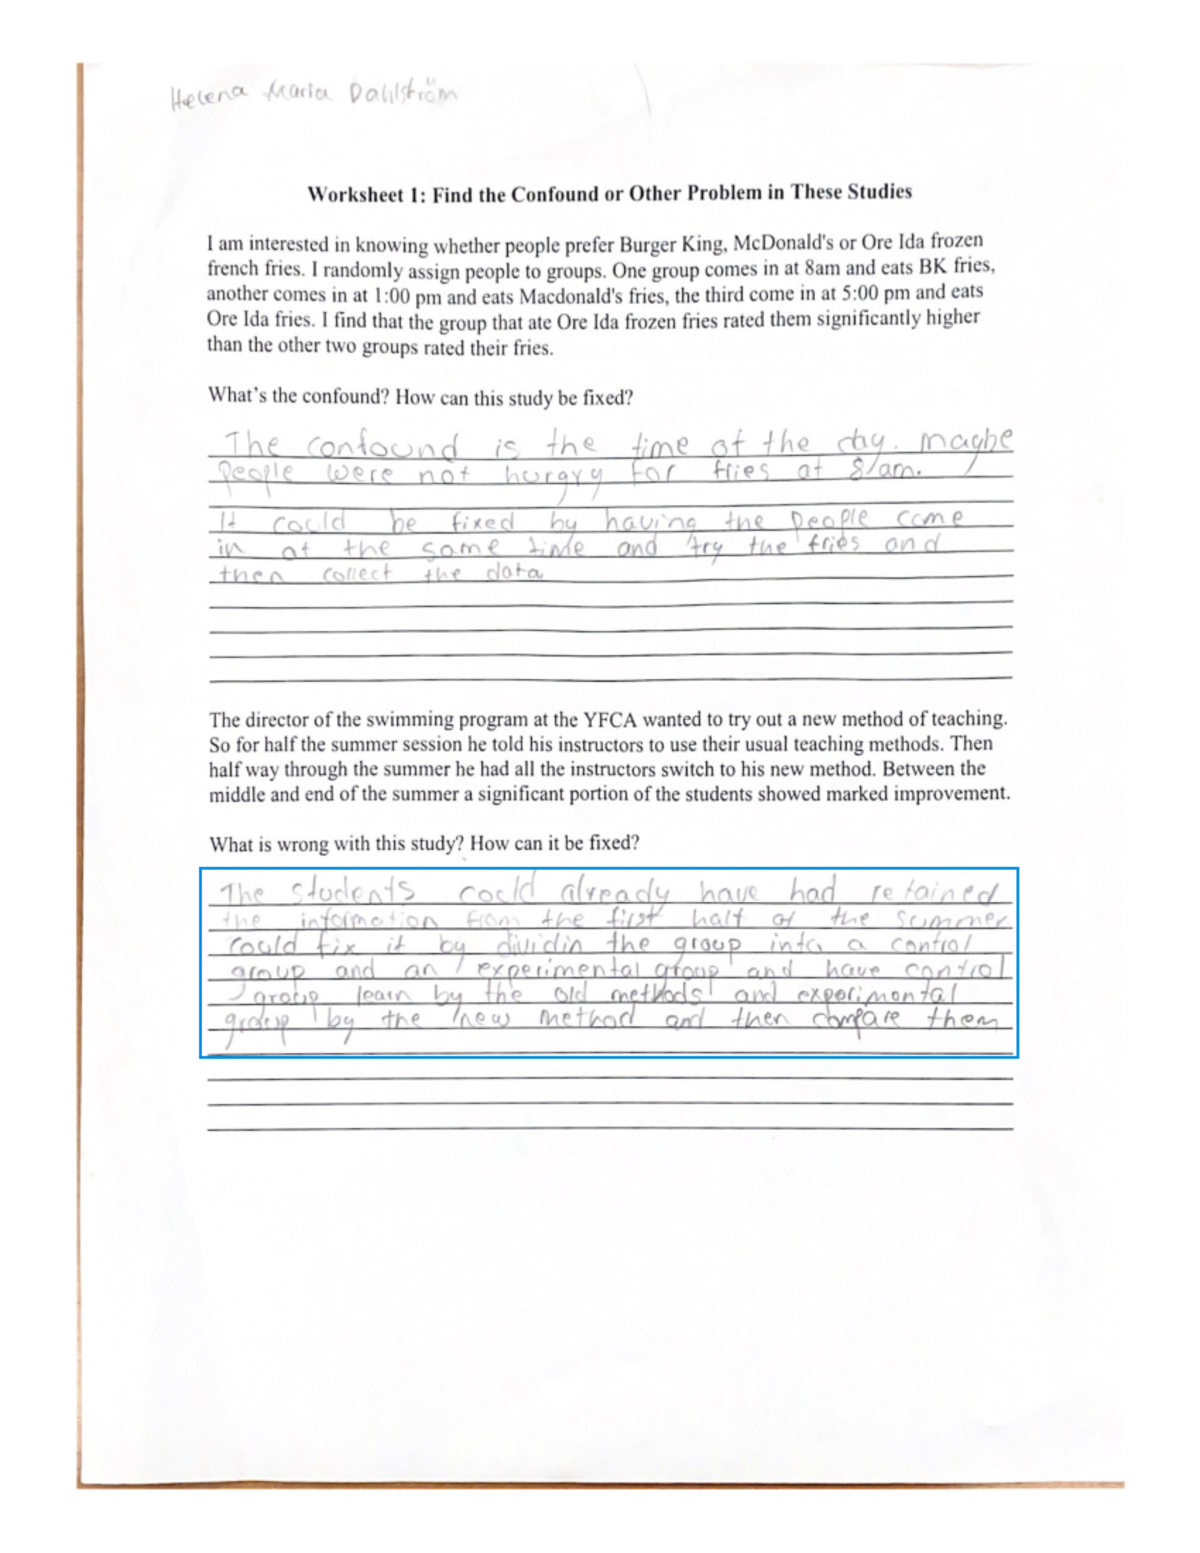 Helena Maria Dahlström
Worksheet 1: Find the Confound or Other Problem in These Studies
I am interested in knowing whether people prefer Burger King, McDonald's or Ore Ida frozen
french fries. I randomly assign people to groups. One group comes in at 8am and eats BK fries,
another comes in at 1:00 pm and eats Macdonald's fries, the third come in at 5:00 pm and eats
Ore Ida fries. I find that the group that ate Ore Ida frozen fries rated them significantly higher
than the other two groups rated their fries.
What's the confound? How can this study be fixed?
The confound is the time of the day. maybe
People were not hungry for fries at 8/am.
It could be fixed by having the people come
in at the same time and try the fries and
then collect the data
The director of the swimming program at the YFCA wanted to try out a new method of teaching.
So for half the summer session he told his instructors to use their usual teaching methods. Then
half way through the summer he had all the instructors switch to his new method. Between the
middle and end of the summer a significant portion of the students showed marked improvement.
What is wrong with this study? How can it be fixed?
The students could already have had retained
the information from the first half of the summer
could fix it by dividin the group into a control
group and an experimental group and have control
group learn by the old methods and experimental
group by the new method and then compare them